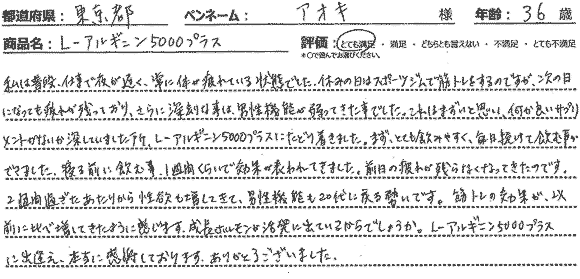 都道府県：東京都　ペンネーム：アオキ　様　年齢：36歳
商品名：L-アルギニン5000プラス　評価：とても満足・満足・どちらとも言えない・不満足・とても不満足
*○で選んでお選びください。
私は普段、仕事で夜が遅く、常に体が疲れている状態でした。休みの日はスポーツジムで筋トレをするのですが、次の日
になっても疲れが残っており、さらに深刻な事は、男性機能が弱ってきた事でした。これはまずいと思い、何か良いサプリ
メントがないか探していました所、L-アルギニン5000プラスにたどり着きました。まず、とても飲みやすく、毎日続けて飲む事が
できました。寝る前に飲む事、1週間くらいで効果が表われてきました。前日の疲れが残らなくなってきたのです。
2週間過ぎたあたりから性欲も増してきて、男性機能も20代に戻る勢いです。筋トレの効果が、以
前に比べ増してきたように感じます。成長ホルモンが活発に出ているからでしょうか。L-アルギニン5000プラス
に出逢え、本当に感謝しております。ありがとうございました。